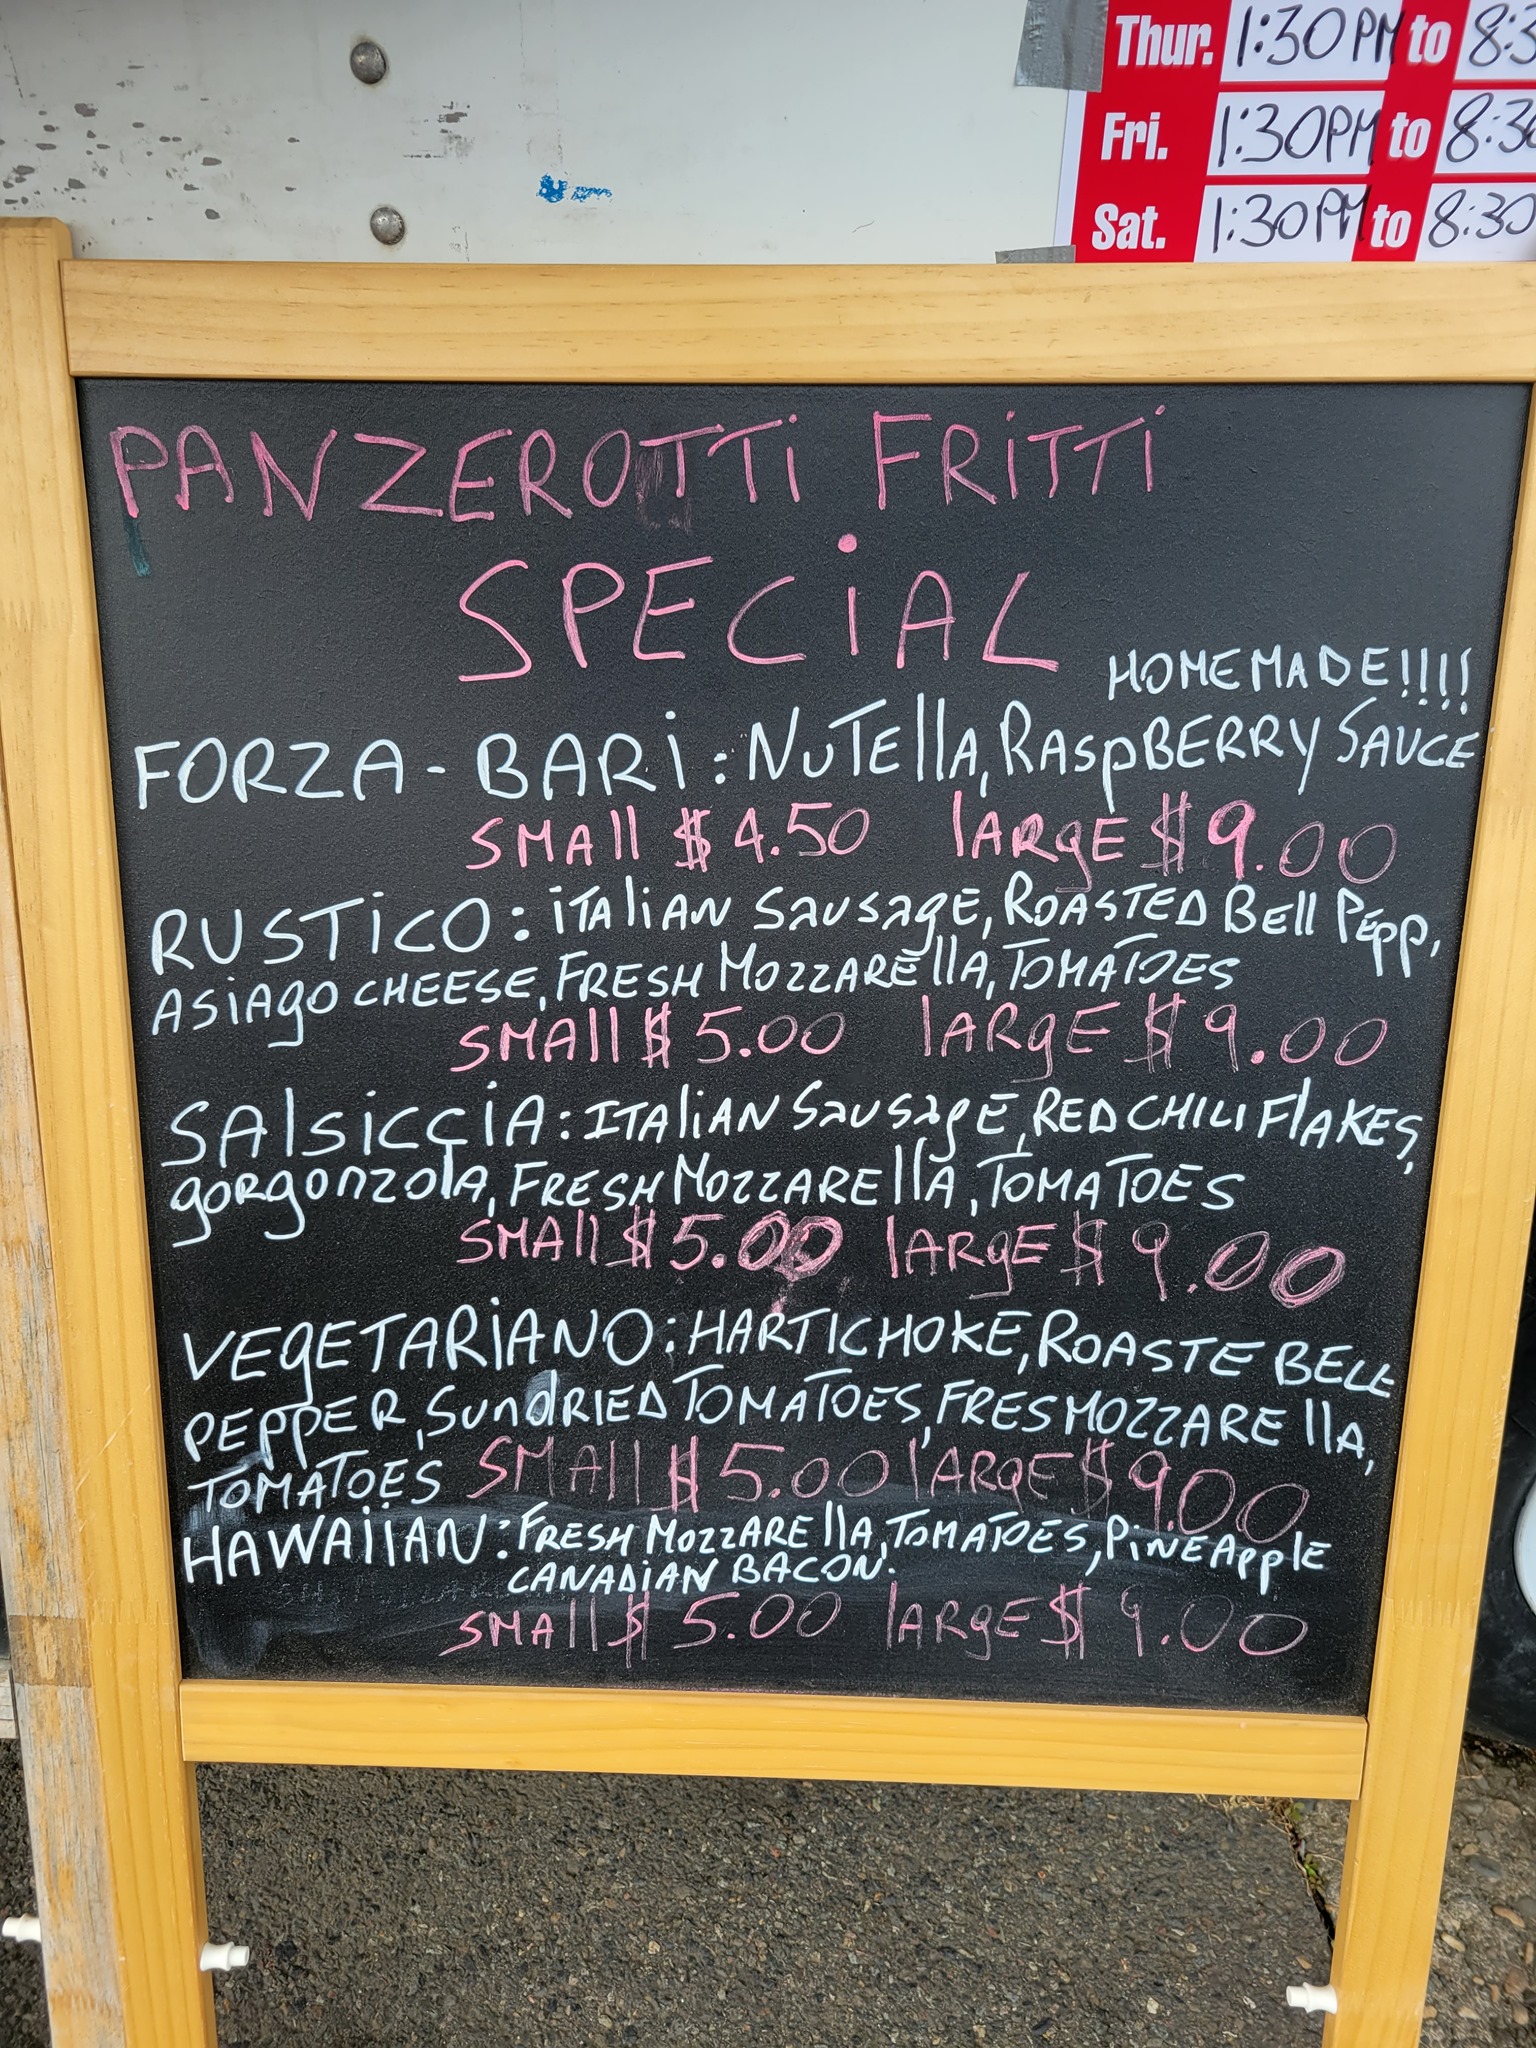 Thur. 1:30PM to 8:3
Fri. 1:30PM to 8:30
Sat. 1:30PM to 8:30
PANZEROTTi FRiTTi
SPECiAL
HOMEMADE!!!!
FORZA-BARi: NUTElla, RASpBERRY SAUCE
SMAll $ 4.50 lARgE $ 9.00
RUSTiCO: iTAliAN SausagE, ROASTED BEll PEpp,
ASiAgO CHEESE, FRESH MOZZAREllA, TOMATOES
SMAll $ 5.00 lARgE $ 9.00
SAlSiCCiA: ITAliAN SausagE, RED CHILI FlAKES,
gORgOnzOlA, FRESH MOZZAREllA, TOMATOES
SMAll $ 5.00 lARgE $ 9.00
VEgETARiANO: HARTICHOKE, ROASTE BELL
PEPPER, SunDRIED TOMATOES, FRES MOZZAREllA,
TOMATOES SMAll $ 5.00 lARgE $ 9.00
HAWAiiAN: FRESH MOZZAREllA, TOMATOES, PiNEApplE
CANADiAN BACON.
SMAll $ 5.00 lARgE $ 9.00